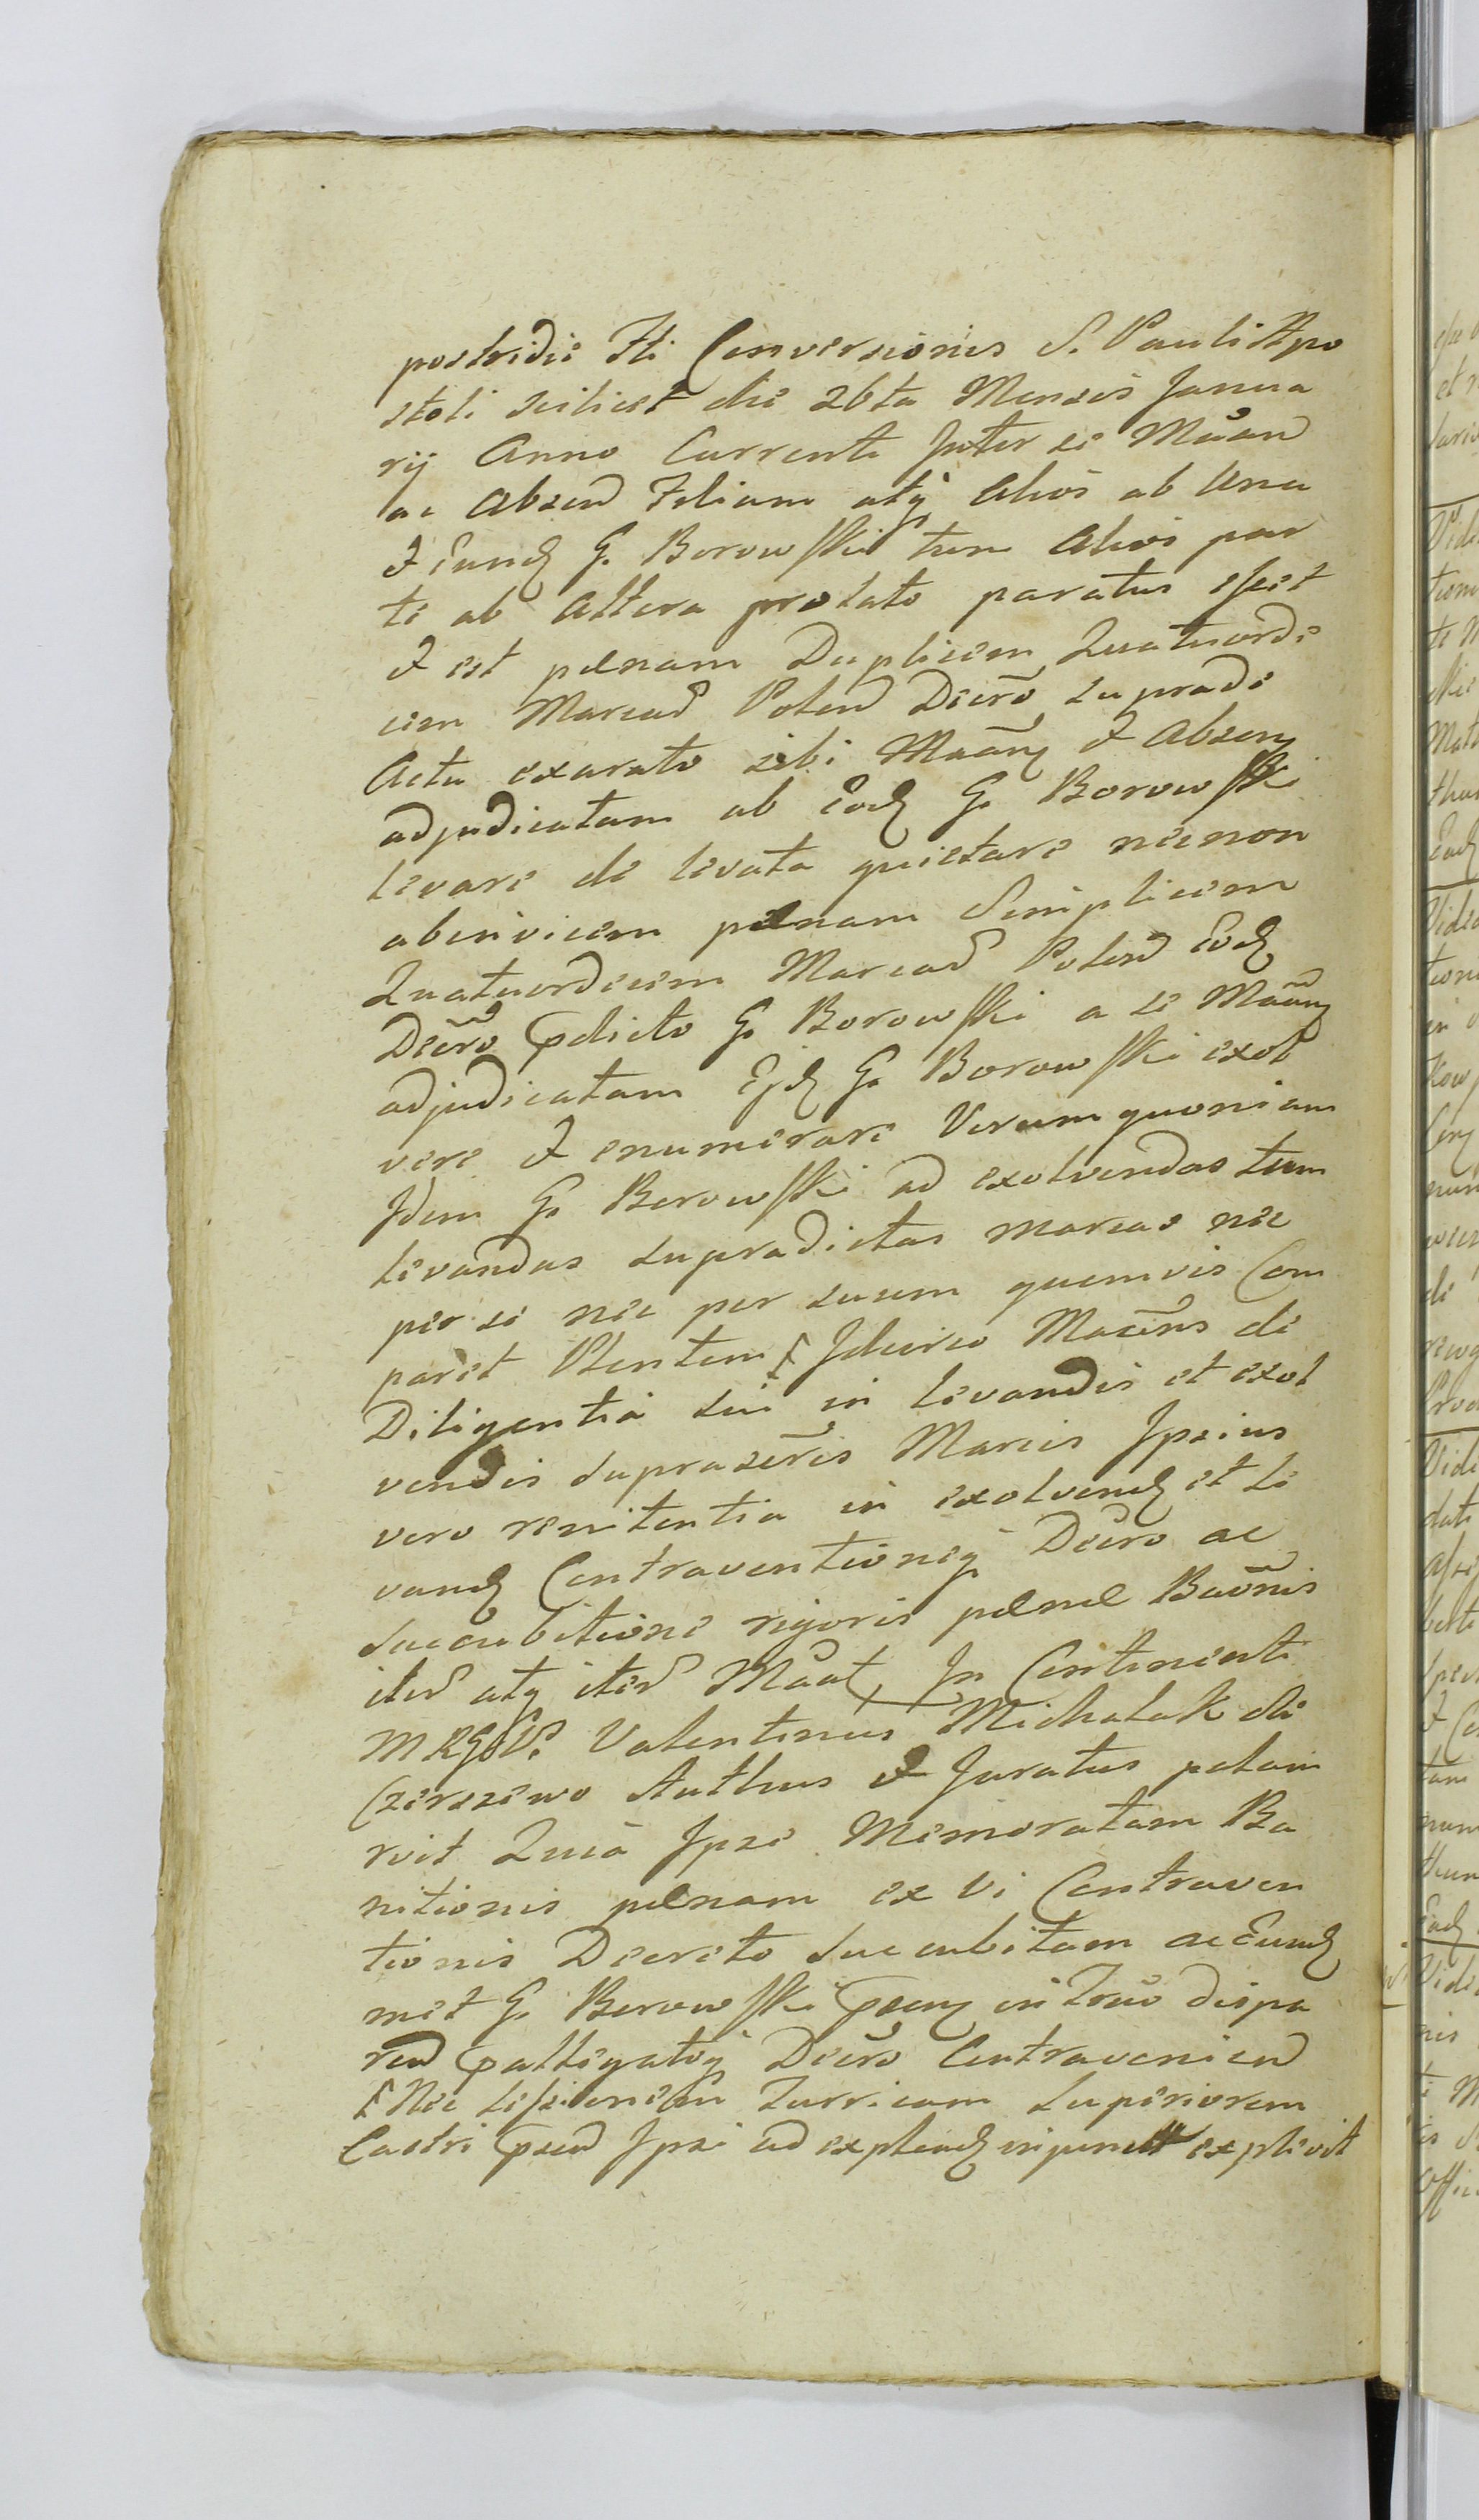 postridie Fti Conversionis S. Pauli Apo
stoli scilicet die 26ta Mensis Janua
rij Anno Currenti Inter se Mãan
ac Absen Filium atq̃ Alios ab Una
& Eund G. Borowski tum Alios par
te ab Altera prolato paratus esset
& est pœnam Duplicem Quatuorde
cim Marcar Polon Decro suprade
Actu exarato sibi Maãn & Absen
adjudicatam ab Eod G. Borowski
levare de levata quietare necnon
abinvicem pœnam Simplicem
Quatuordecim Marcar Polon Eod
Decro pdicto G. Borowski a se Maãn
adjudicatam Ejd G. Borowski exol
vere & enumerare Verum quoniam
Idem G. Borowski ad exolvendas tum
levandas supradictas marcas nec
per se nec per suum quemvis Com
paret Plentem Idcirco Maãns de
Diligentia sui in levandis et exol
vendis suprascris Marcis Ipsius
vero renitentia in exolvend et le
vand Contraventioneq̃ Decro ac
succubitione rigoris pœnæ Baõnis
iter atq̃ iter Mãat In Continenti
MRGvP. Valentinus Michalak de
Czerszewo Authus & Juratus palam
rvit Quia Ipse Memoratam Ba
nitionis pœnam ex Vi Contraven
tionis Decreto succubitam ac Eund
met G. Borowski psen in Trno dispa
ren palligatoq̃ Decro Contravenien
Nec sessionem Turricam Superiorem
Castri psen Ipsi ad explend injunct explevit